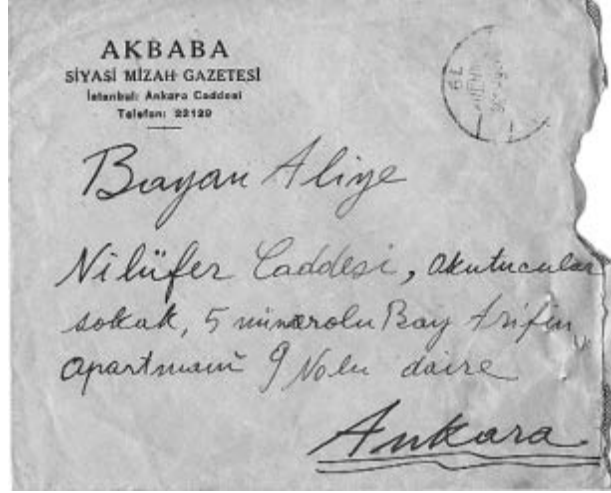 AKBABA
SİYASİ MİZAH GAZETESİ
İstanbul: Ankara Caddesi
Telefon: 22129
Bayan Aliye
Nilüfer Caddesi, Okutucular
sokak, 5 nümerolu Bay Arifin
apartmanı 9 Nolu daire
Ankara